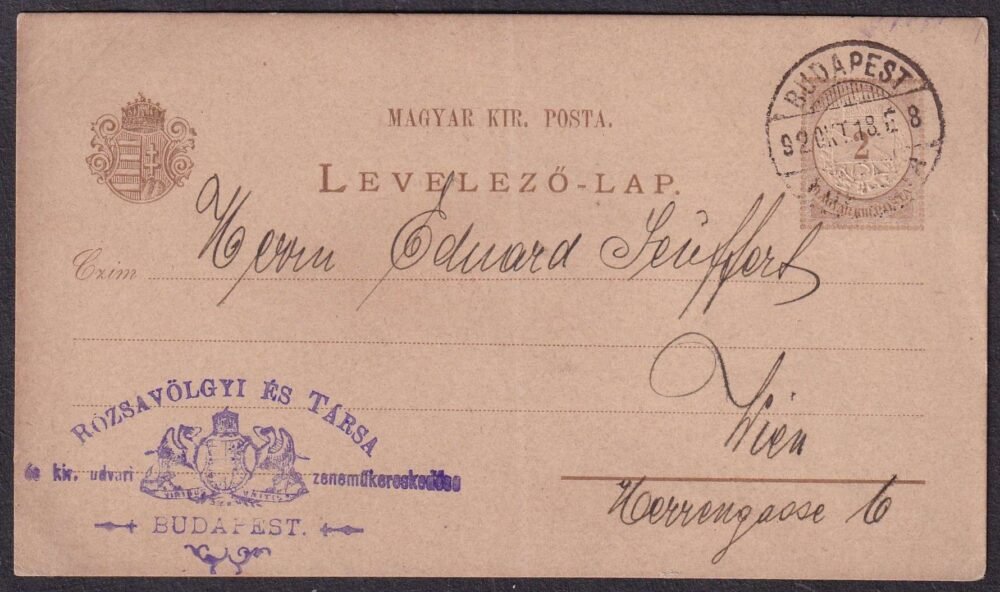 BUDAPEST
8
92 OKT. 18.
2
MAGYAR KIR. POSTA.
LEVELEZŐ-LAP.
Czim
Herrn Eduard Seuffert
Wien
Herrengasse 6
RÓZSAVÖLGYI ÉS TÁRSA
és kir. udvari zeneműkereskedése
VIRIBUS UNITIS
BUDAPEST.